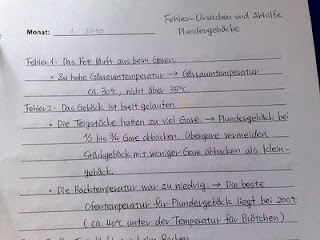 Fehler-Ursachen und Abhilfe
Plundergebäcke
Monat: 1. 2010
Fehler 1. Das Fet läuft aus beim Garen.
• Zu hohe Gärraumtemperatur → Gärraumtemperatur
ca. 30°C, nicht über 35°C.
Fehler 2. Das Gebäck ist breit gelaufen
• Die Teigstücke hatten zu viel Gare. → Plundergebäck bei
1/2 bis 3/4 Gare abbacken. Übergare vermeiden.
Stückgebäck mit weniger Gare abbacken als klein-
gebäck.
• Die Backtemperatur war zu niedrig → Die beste
Ofentemperatur für Plundergebäck liegt bei 200°C
(ca. 40°C unter der Temperatur für Brötchen)